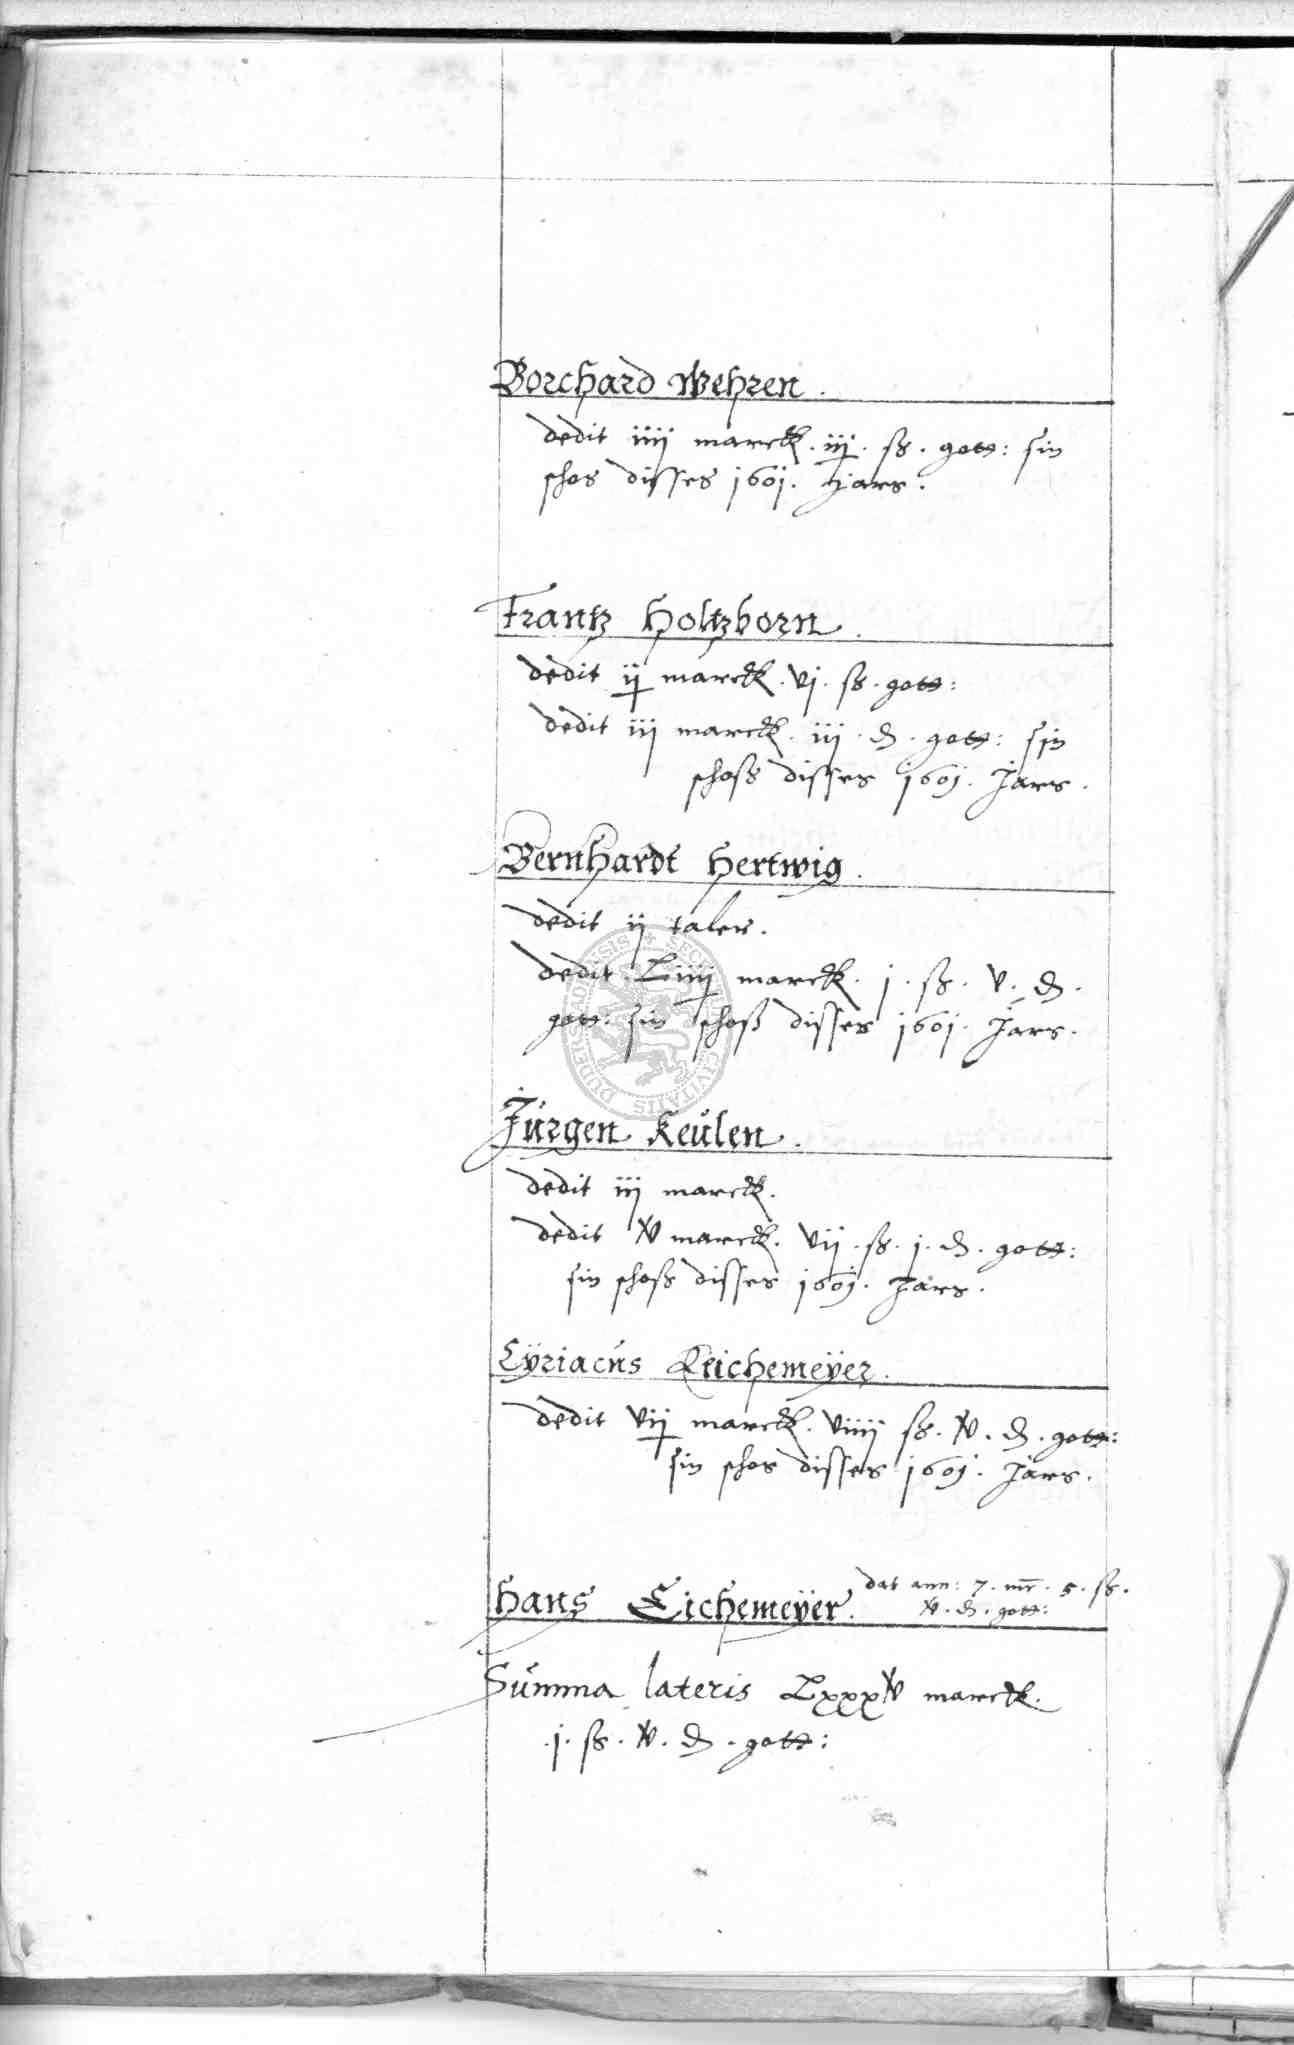 Borchard Wehren.
dedit iiij marck. iij. ß. gott: sin
schos disses 1601. Jars.
Frantz Holtzborn.
dedit ij marck. vj. ß. gott:
dedit iij marck. iij. d. gott: sin
schoss disses 1601. Jars.
Bernhardt Hertwig.
dedit ij taler.
dedit Liiij marck. j. ß. v. d.
gott: sin schoß disses 1601. Jars.
Jürgen Keulen.
dedit iij marck.
dedit x marck. vij. ß. j. d. gott:
sin schoss disses 1601. Jars.
Cÿriacus Eichemeÿer.
dedit vij marck. viiij ß. x. d. gott:
sin schos disses 1601. Jars.
Hans Eichemeÿer. dat ann: 7. mr. 5. ß.
x. d. gott:
Summa lateris Lxxxx marck.
j. ß. x. d. gott:
SECRETUM CIVITATIS DUDERSTADENSIS